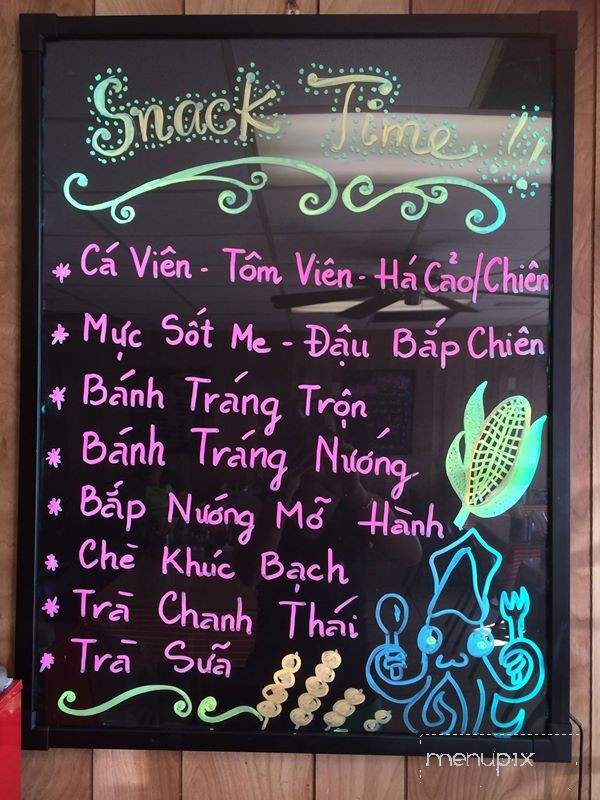 Snack Time !!
* Cá Viên - Tôm Viên - Há Cảo/Chiên
* Mực Sốt Me - Đậu Bắp Chiên
* Bánh Tráng Trộn
* Bánh Tráng Nướng
* Bắp Nướng Mỡ Hành
* Chè Khúc Bạch
* Trà Chanh Thái
* Trà Sữa
menupix